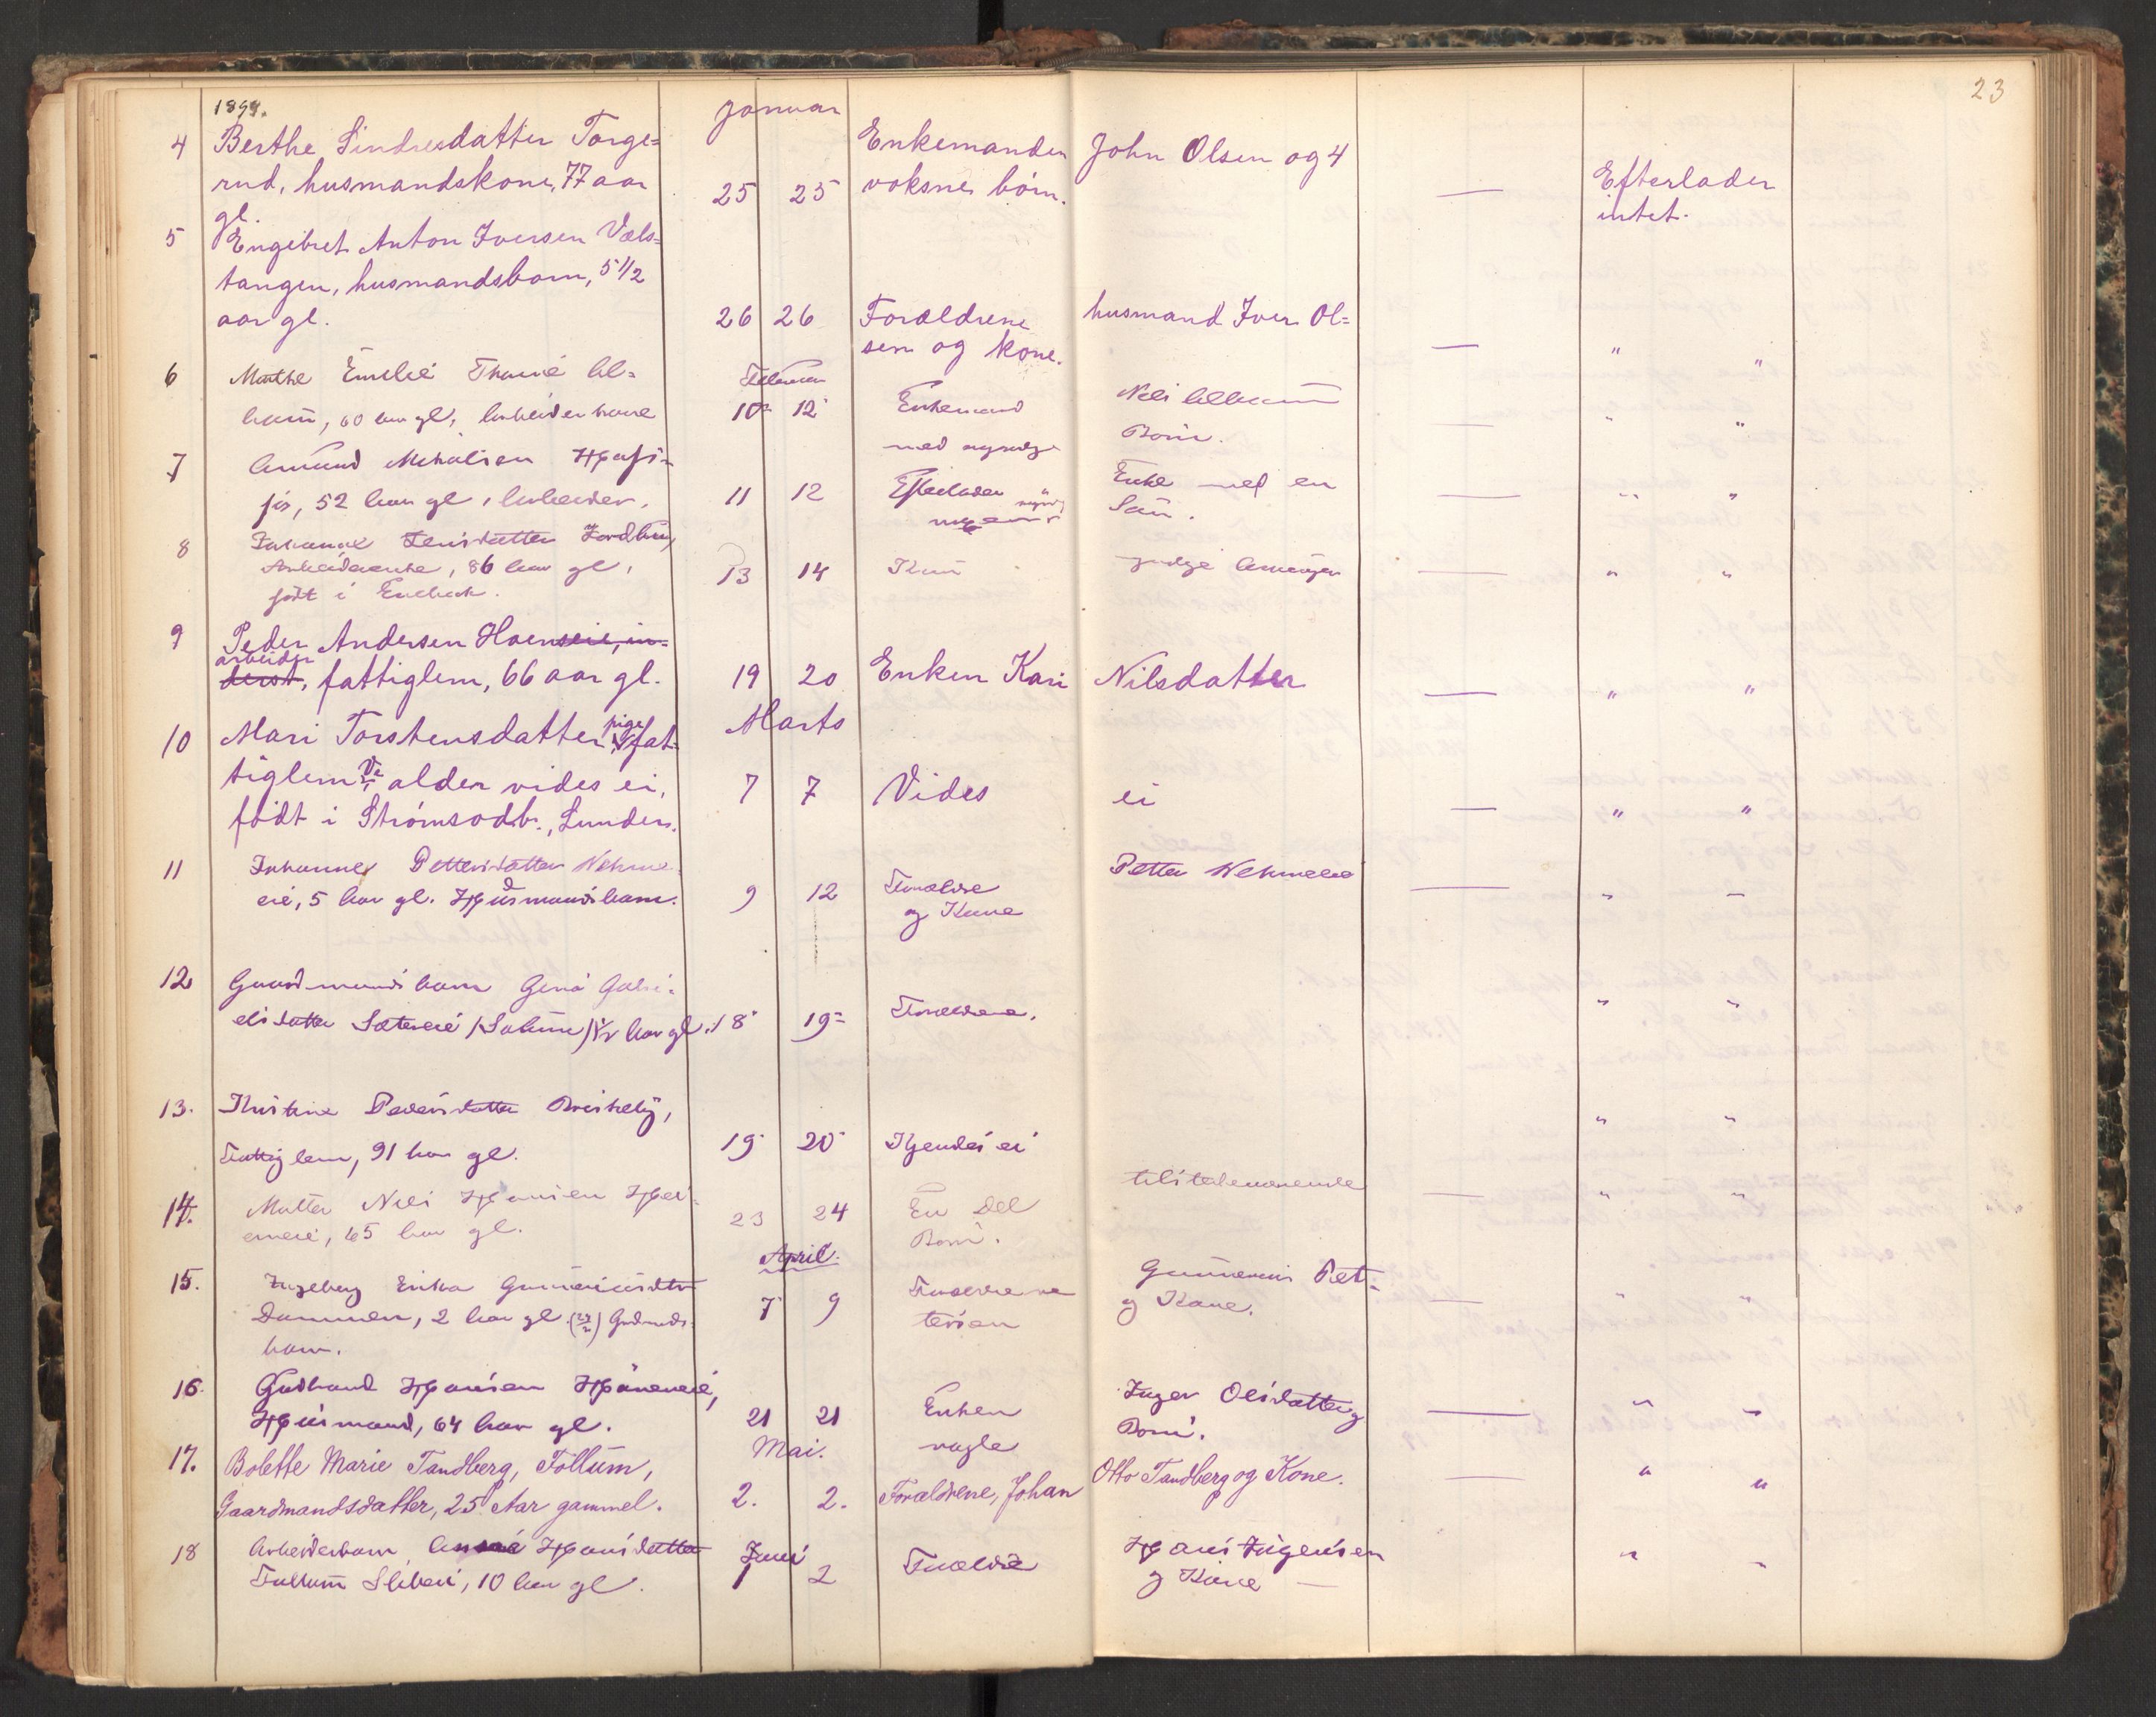 23
1894.
Januar
4 Berthe Sindresdatter Torge=
rud, husmandskone, 77 aar
gl.
25 25
Enkemanden John Olsen og 4
voksne børn.
—
Efterlader
intet.
5 Engebret Anton Iversen Væls=
tangen, husmandsbarn, 5 1/2
aar gl.
26 26
Forældrene husmand Iver Ol=
sen og kone.
— " "
6 Marthe Emelie
60 aar gl, Arbeiderkone
Februar
10 12
Enkemand
med
Børn.
— " "
7 Amund
52 aar gl, Arbeider.
11 12
Efterlader Enke med en
Søn.
— " "
8 Johanne Jensdatter
Arbeiderenke, 86 aar gl,
født i Enebak.
13 14
Kun
— " "
9 Peder Andersen Hoenseie, in=
arbeider
derst, fattiglem, 66 aar gl.
19 20
Enken Kari Nilsdatter
— " "
10 Mari Torstensdatter, pige, fat=
tiglem, alder vides ei,
født i Strømsodb., Lunder.
Marts
7 7
Vides ei
— " "
11 Johanne Pettersdatter
eie, 5 aar gl. Husmandsbarn.
9 12
Forældre Petter
og Kone
— " "
12 Gaardmandsbarn Gina
Sætereie 1/2 aar gl.
18 19
Forældrene.
" "
13. Kristine Pedersdatter
Fattiglem, 91 aar gl.
19 20
Kjendes ei
" "
14. Nils Hansen
65 aar gl.
23 24
En Del tilstedeværende
Børn.
— " "
April.
15. Ingeborg
Dammen, 2 aar gl.
barn.
7 9
Forældrene Gunerius Pet=
tersen og Kone.
— " "
16. Gudbrand Hansen
Husmand, 64 aar gl.
21 21
Enken Inger Olsdatter og
nogle Børn.
— " "
Mai.
17. Bolette Marie Tandberg, Follum,
Gaardmandsdatter, 25 Aar gammel.
2. 2.
Forældrene, Johan Otto Tandberg og Kone.
— " "
18 Arbeiderbarn Hansdatter
Follum Sliberi, 10 aar gl.
Juni
1 2
Forældre Hans Jørgensen
og Kone —
" "